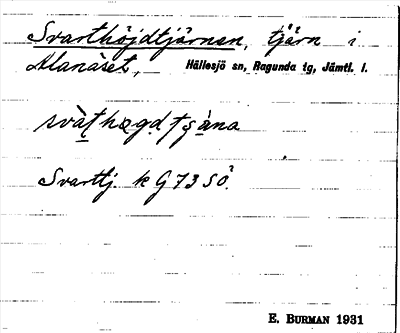 Svarthöjdtjärnen, tjärn i
Alanäset, Hällesjö sn, Ragunda tg, Jämtl. l.
Svarttj. k G 73 SÖ
E. BURMAN 1931